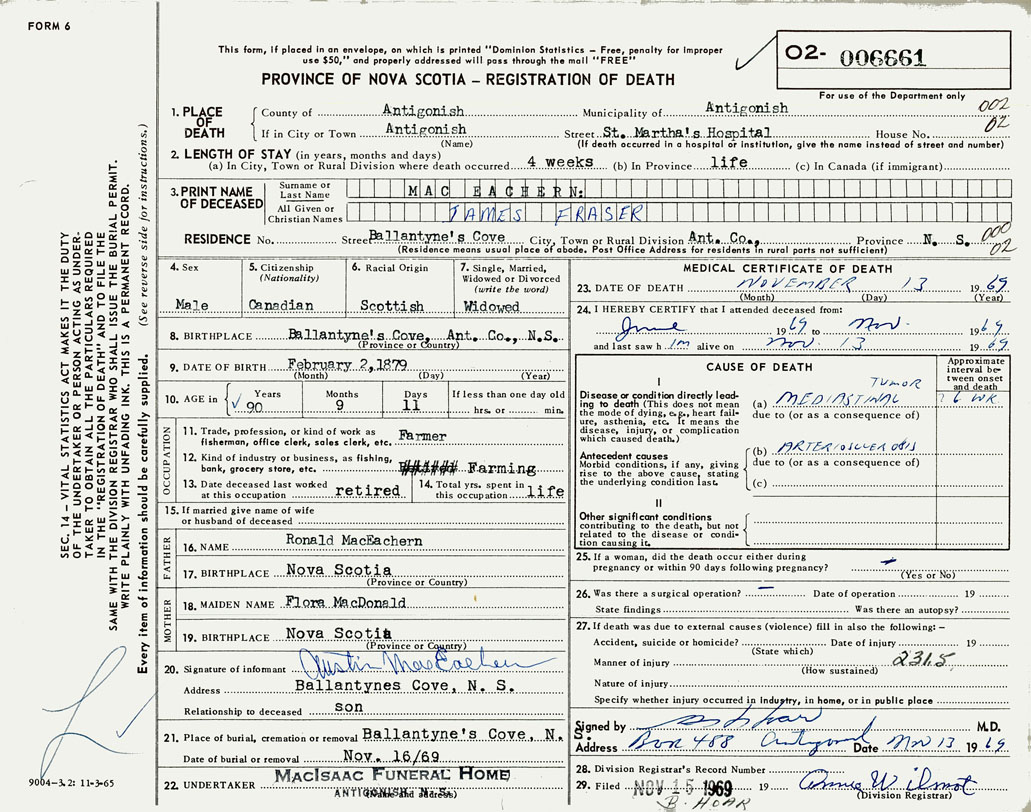 FORM 6
This form, if placed in an envelope, on which is printed "Dominion Statistics — Free, penalty for improper
use $50," and properly addressed will pass through the mail "FREE"
PROVINCE OF NOVA SCOTIA — REGISTRATION OF DEATH
O2- 006661
For use of the Department only
002
02
1. PLACE OF DEATH
County of Antigonish Municipality of Antigonish
If in City or Town Antigonish Street St. Martha's Hospital House No.
(Name) (If death occurred in a hospital or institution, give the name instead of street and number)
2. LENGTH OF STAY (in years, months and days)
(a) In City, Town or Rural Division where death occurred 4 weeks (b) In Province life (c) In Canada (if immigrant)
3. PRINT NAME OF DECEASED
Surname or Last Name MAC EACHERN:
All Given or Christian Names JAMES FRASER
RESIDENCE No. Street Ballantyne's Cove City, Town or Rural Division Ant. Co., Province N. S.
000
02
(Residence means usual place of abode. Post Office Address for residents in rural parts not sufficient)
4. Sex
Male
5. Citizenship
(Nationality)
Canadian
6. Racial Origin
Scottish
7. Single, Married,
Widowed or Divorced
(write the word)
Widowed
8. BIRTHPLACE Ballantyne's Cove, Ant. Co., N.S.
(Province or Country)
9. DATE OF BIRTH February 2,1879
(Month) (Day) (Year)
10. AGE in
Years Months Days If less than one day old
90 9 11 hrs. or min.
OCCUPATION
11. Trade, profession, or kind of work as
fisherman, office clerk, sales clerk, etc. Farmer
12. Kind of industry or business, as fishing,
bank, grocery store, etc. Farming
13. Date deceased last worked
at this occupation retired
14. Total yrs. spent in
this occupation life
15. If married give name of wife
or husband of deceased
FATHER
16. NAME Ronald MacEachern
17. BIRTHPLACE Nova Scotia
(Province or Country)
MOTHER
18. MAIDEN NAME Flora MacDonald
19. BIRTHPLACE Nova Scotia
(Province or Country)
20. Signature of informant Austin MacEachern
Address Ballantynes Cove, N. S.
Relationship to deceased son
21. Place of burial, cremation or removal Ballantyne's Cove, N. S.
Date of burial or removal Nov. 16/69
22. UNDERTAKER MacIsaac Funeral Home
ANTIGONISH, N.S.
(Name and Address)
MEDICAL CERTIFICATE OF DEATH
23. DATE OF DEATH NOVEMBER 13 1969
(Month) (Day) (Year)
24. I HEREBY CERTIFY that I attended deceased from:
June 1969 to Nov. 1969
and last saw him alive on Nov 13 1969
CAUSE OF DEATH
Approximate
interval be-
tween onset
and death
I
Disease or condition directly lead-
ing to death (This does not mean
the mode of dying, e.g., heart fail-
ure, asthenia, etc. It means the
disease, injury, or complication
which caused death.)
TUMOR
(a) MEDIASTINAL ? 6 WK.
due to (or as a consequence of)
Antecedent causes
Morbid conditions, if any, giving
rise to the above cause, stating
the underlying condition last.
(b) ARTERIOSCLEROSIS
due to (or as a consequence of)
(c)
II
Other significant conditions
contributing to the death, but not
related to the disease or condi-
tion causing it.
25. If a woman, did the death occur either during
pregnancy or within 90 days following pregnancy? —
(Yes or No)
26. Was there a surgical operation? — Date of operation 19
State findings Was there an autopsy?
27. If death was due to external causes (violence) fill in also the following: —
Accident, suicide or homicide? Date of injury 19
(State which)
Manner of injury 231.5
(How sustained)
Nature of injury
Specify whether injury occurred in industry, in home, or in public place
Signed by M.D.
Address Box 488 Antigonish Date Nov 13 1969
28. Division Registrar's Record Number
29. Filed NOV 15 1969 19 Wilmot
(Division Registrar)
B. HOAR
SEC. 14 — VITAL STATISTICS ACT MAKES IT THE DUTY
OF THE UNDERTAKER OR PERSON ACTING AS UNDER-
TAKER TO OBTAIN ALL THE PARTICULARS REQUIRED
IN THE "REGISTRATION OF DEATH" AND TO FILE THE
SAME WITH THE DIVISION REGISTRAR WHO SHALL ISSUE THE BURIAL PERMIT.
WRITE PLAINLY WITH UNFADING INK. THIS IS A PERMANENT RECORD.
Every item of information should be carefully supplied. (See reverse side for instructions.)
9004—3.2: 11-3-65